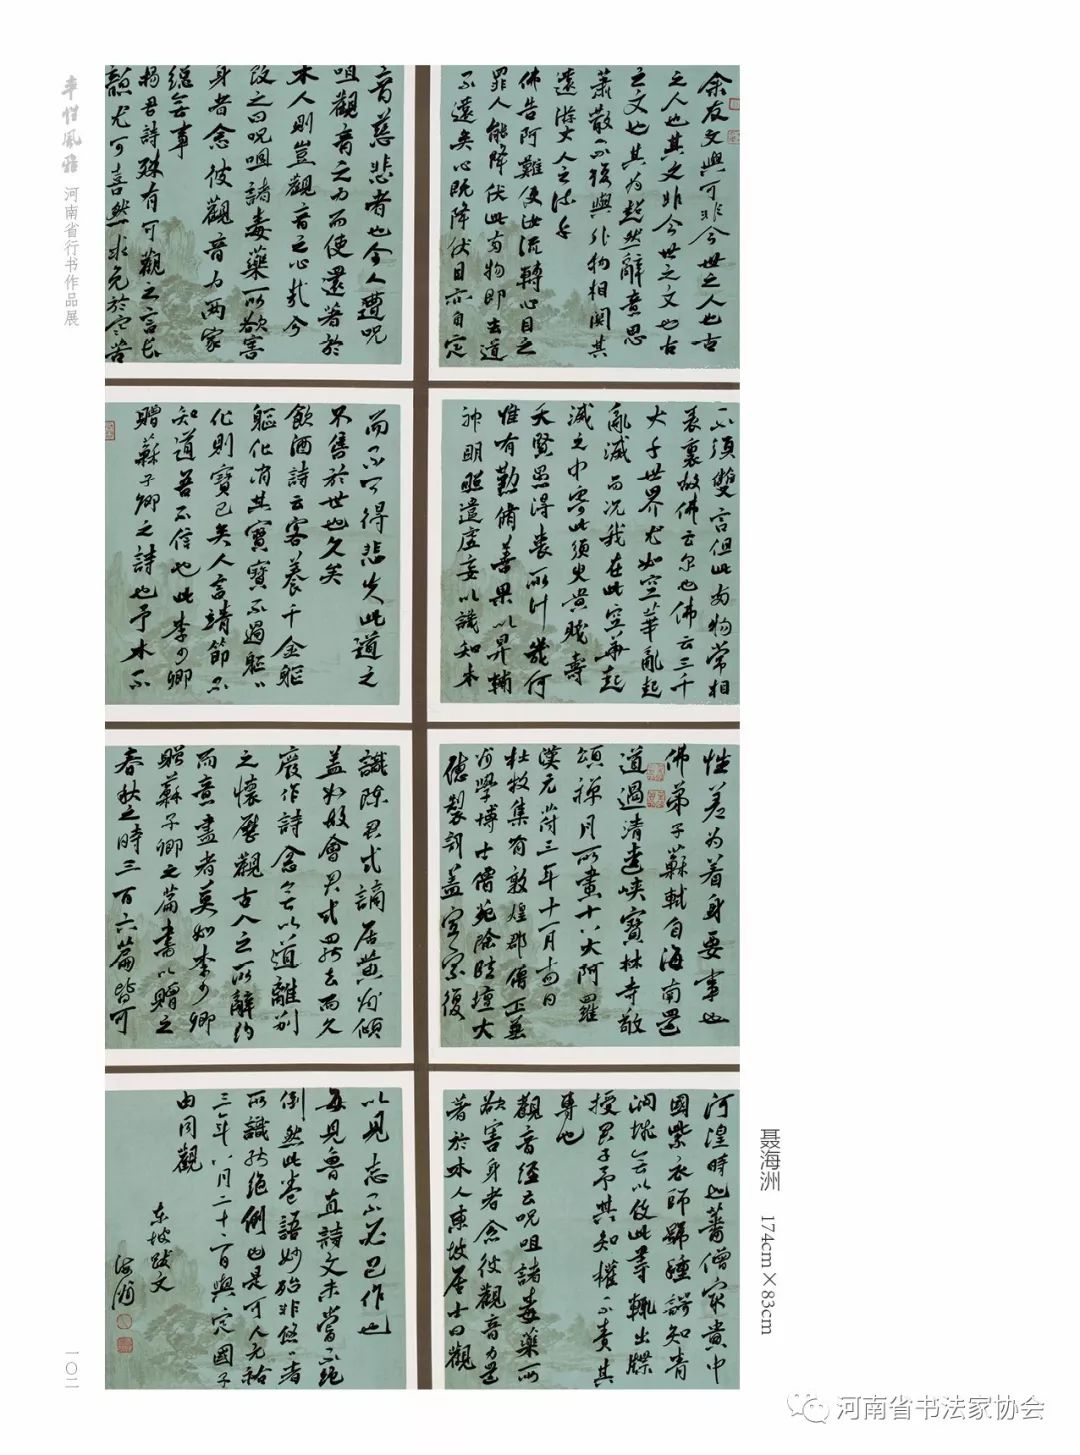 率性風雅 河南省行书作品展
余友文與可非今世之人也古
之人也其文非今世之文也古
之文也其为超然辭意思
蕭散不復與外物相関其
遠游大人之流乎
佛告阿難使汝流轉心目之
罪人能降伏此两物即去道
不遠矣心既降伏目亦自定
不須雙言但此两物常相
表裏故佛云尔也佛云三千
大千世界犹如空華亂起
亂滅而况我在此空華起
滅之中寄此須臾貴賤壽
夭賢愚得喪所计幾何
惟有勤脩善果以昇輔
神明照遣虚妄以識知本
性差为着身要事也
佛弟子蘇軾自海南還
道過清遠峡寶林寺敬
頌禪月所畫十八大阿羅
漢元符三年十一月 日
杜牧集有敦煌郡僧正兼
州學博士僧苑除臨壇大
德製词盖宣宗復
河湟時也蕃僧宗貴中
國紫衣師號種諤知青
澗城无以使此等輒出牒
授君子予其知權不责其
專也
觀音經云呪咀諸毒藥所
欲害身者念彼觀音力還
著於本人東坡居士曰觀
音慈悲者也今人遭呪
咀觀音之力而使還著於
本人則豈觀音之心哉今
改之曰呪咀諸毒藥所欲害
身者念彼觀音力两家
總无事
楊君詩殊有可觀之言长
韻尤可喜然求免於寒苦
而不可得悲夫此道之
不售於世也久矣
飲酒詩云客養千金軀
軀化消其寶寶不過軀軀
化則寶已矣人言靖節不
知道吾不信也此李少卿
贈蘇子卿之詩也予本不
識陳君式謫居黄州傾
盖如故會君式罷去而久
廢作詩念无以道離别
之懷歷觀古人之所辭约
而意盡者莫如李少卿
贈蘇子卿之篇書以贈之
春秋之時三百六篇皆可
以見志不必己作也
每見魯直詩文未嘗不绝
倒然此卷語妙殆非悠悠者
所識能绝倒也是可人元祐
三年八月二十二日與定國子
由同觀
東坡跋文
海洲
聂海洲 174cm×83cm
一〇二
河南省书法家协会